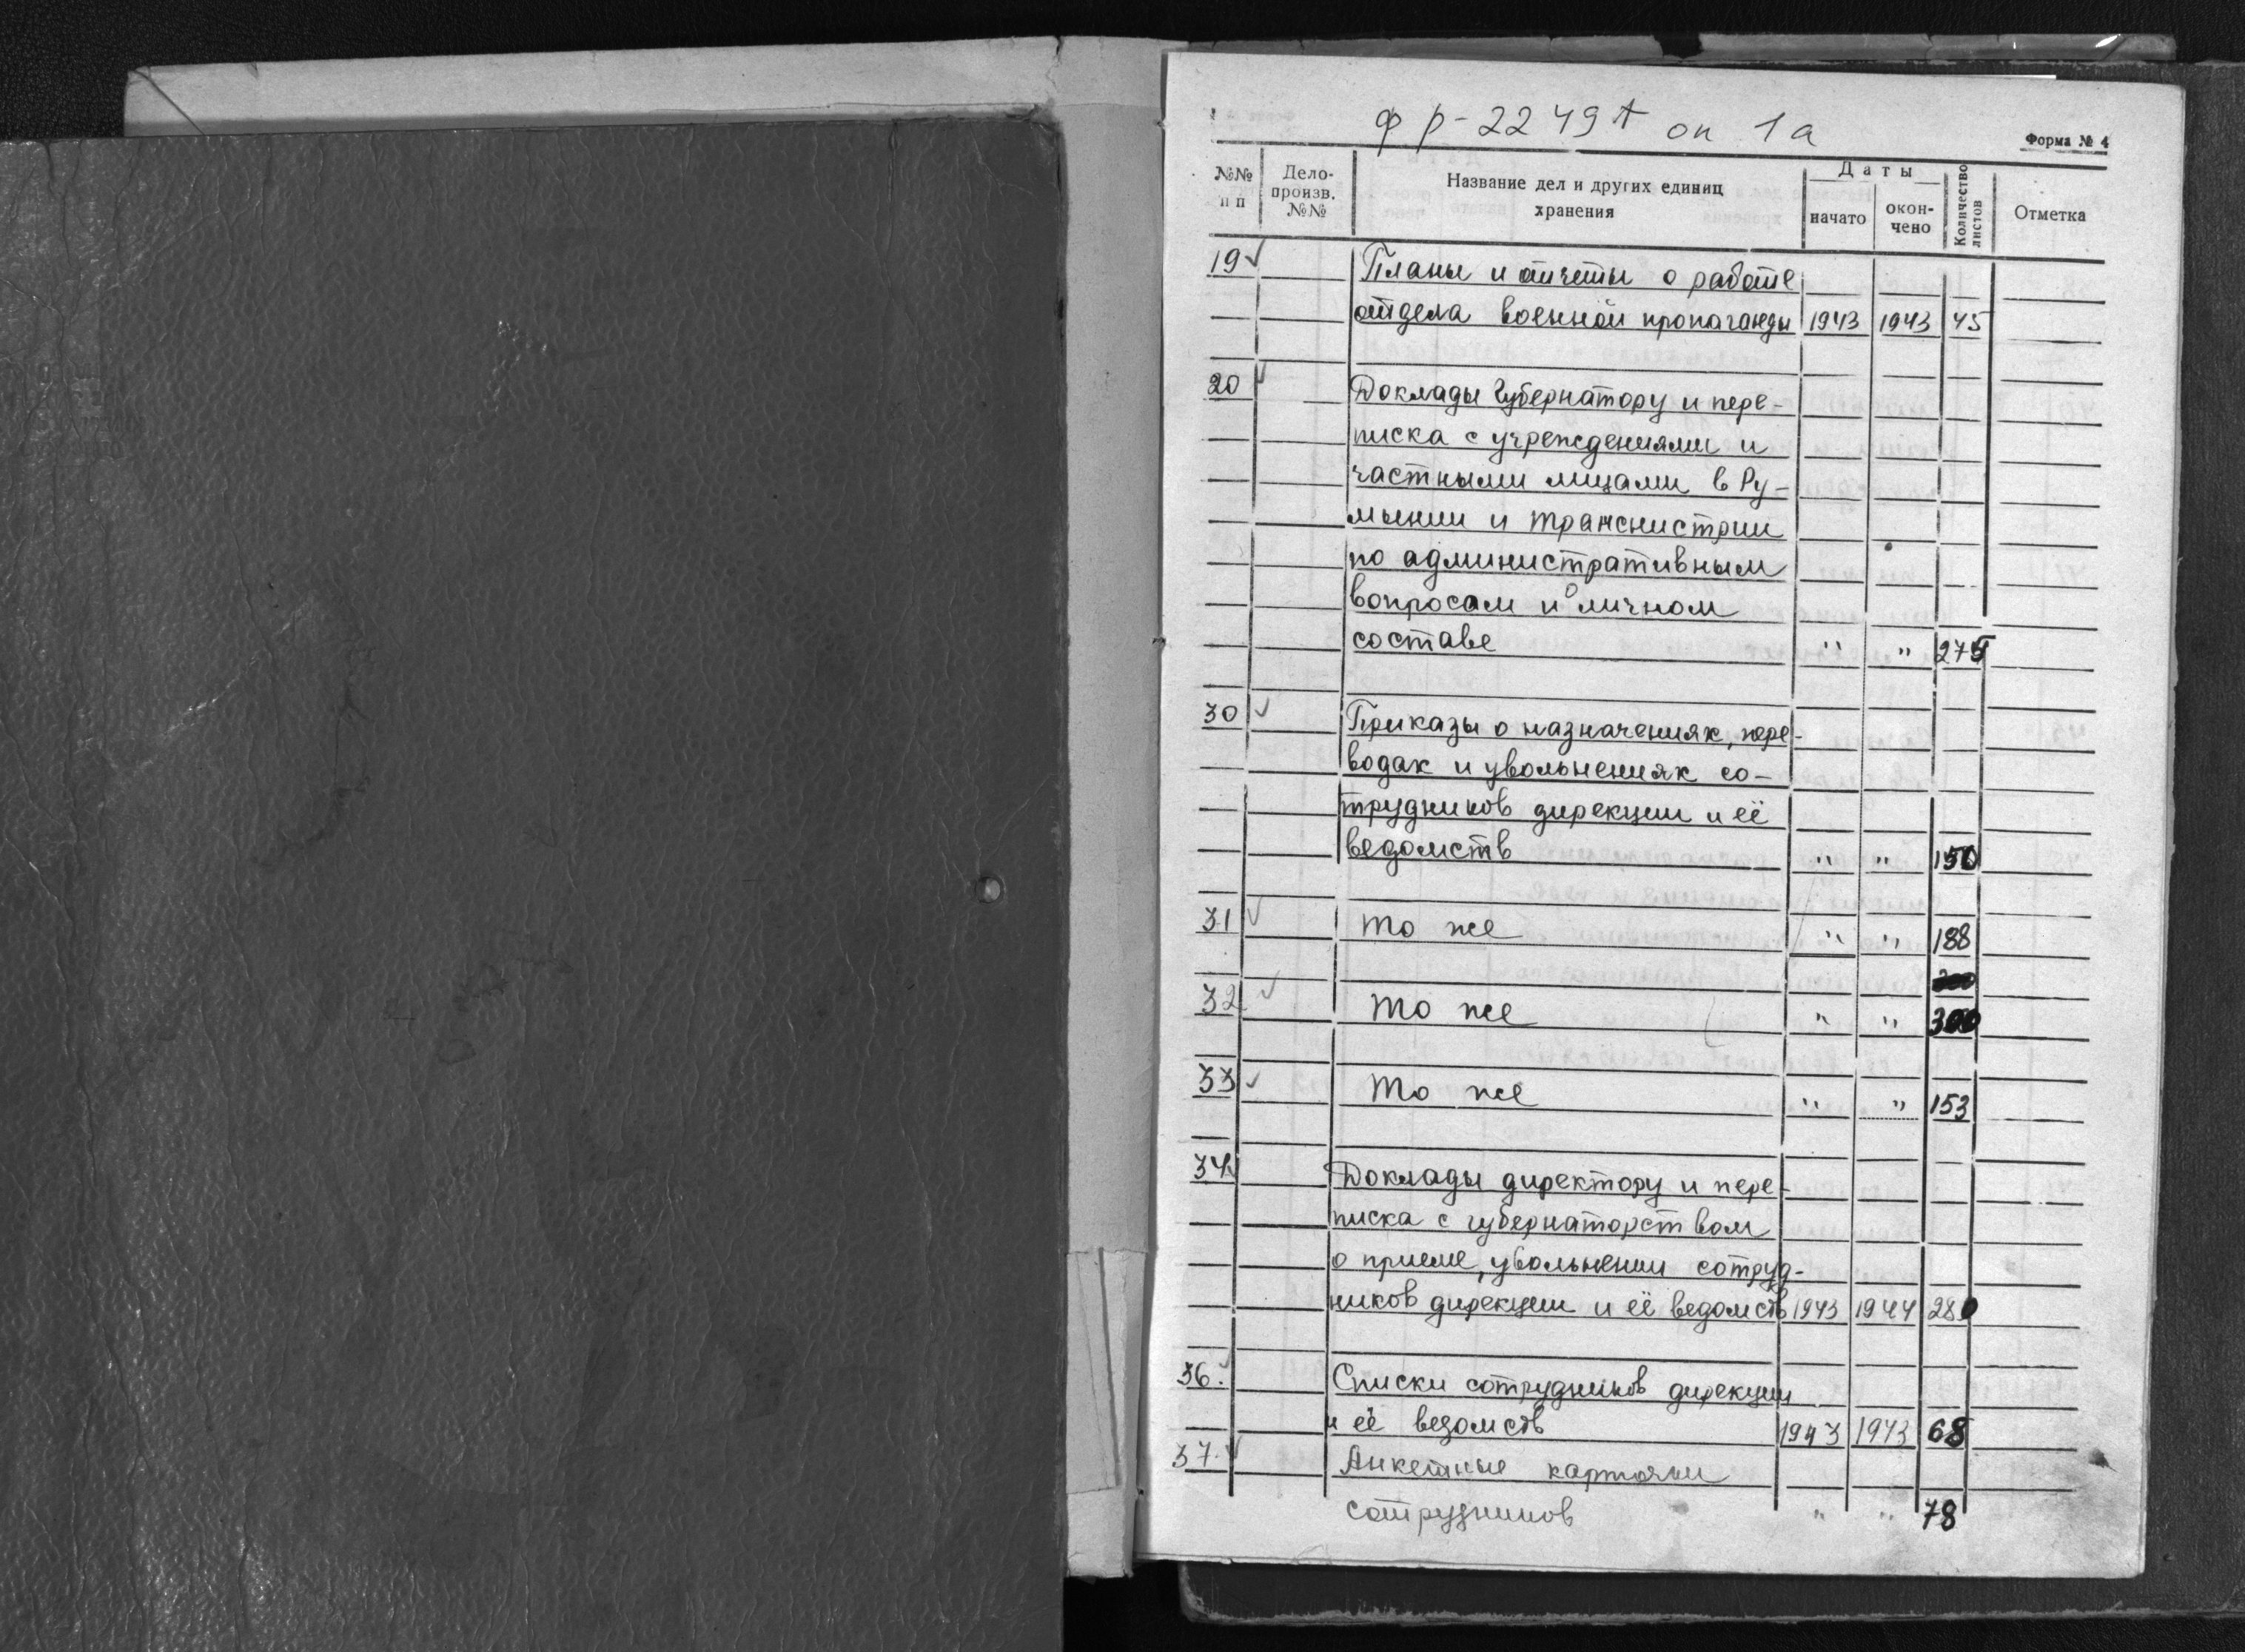 ф р-2249А оп 1а
Форма № 4
№№ п п
Дело-произв. №№
Название дел и других единиц хранения
Даты
начато
окон-чено
Количество листов
Отметка
19 Планы и отчеты о работе
отдела военной пропаганды 1943 1943 45
20 Доклады губернатору и пере-
писка с учреждениями и
частными лицами в Ру-
мынии и Транснистрии
по административным
вопросам и о личном
составе " " 275
30 Приказы о назначениях, пере-
водах и увольнениях со-
трудников дирекции и её
ведомств " " 150
31 То же " " 188
32 То же " " 300
33 То же " " 153
34 Доклады директору и пере-
писка с губернаторством
о приеме, увольнении сотруд-
ников дирекции и её ведомств 1943 1944 280
36. Списки сотрудников дирекции
и её ведомств 1943 1943 68
37. Анкетные карточки
сотрудников " " 78